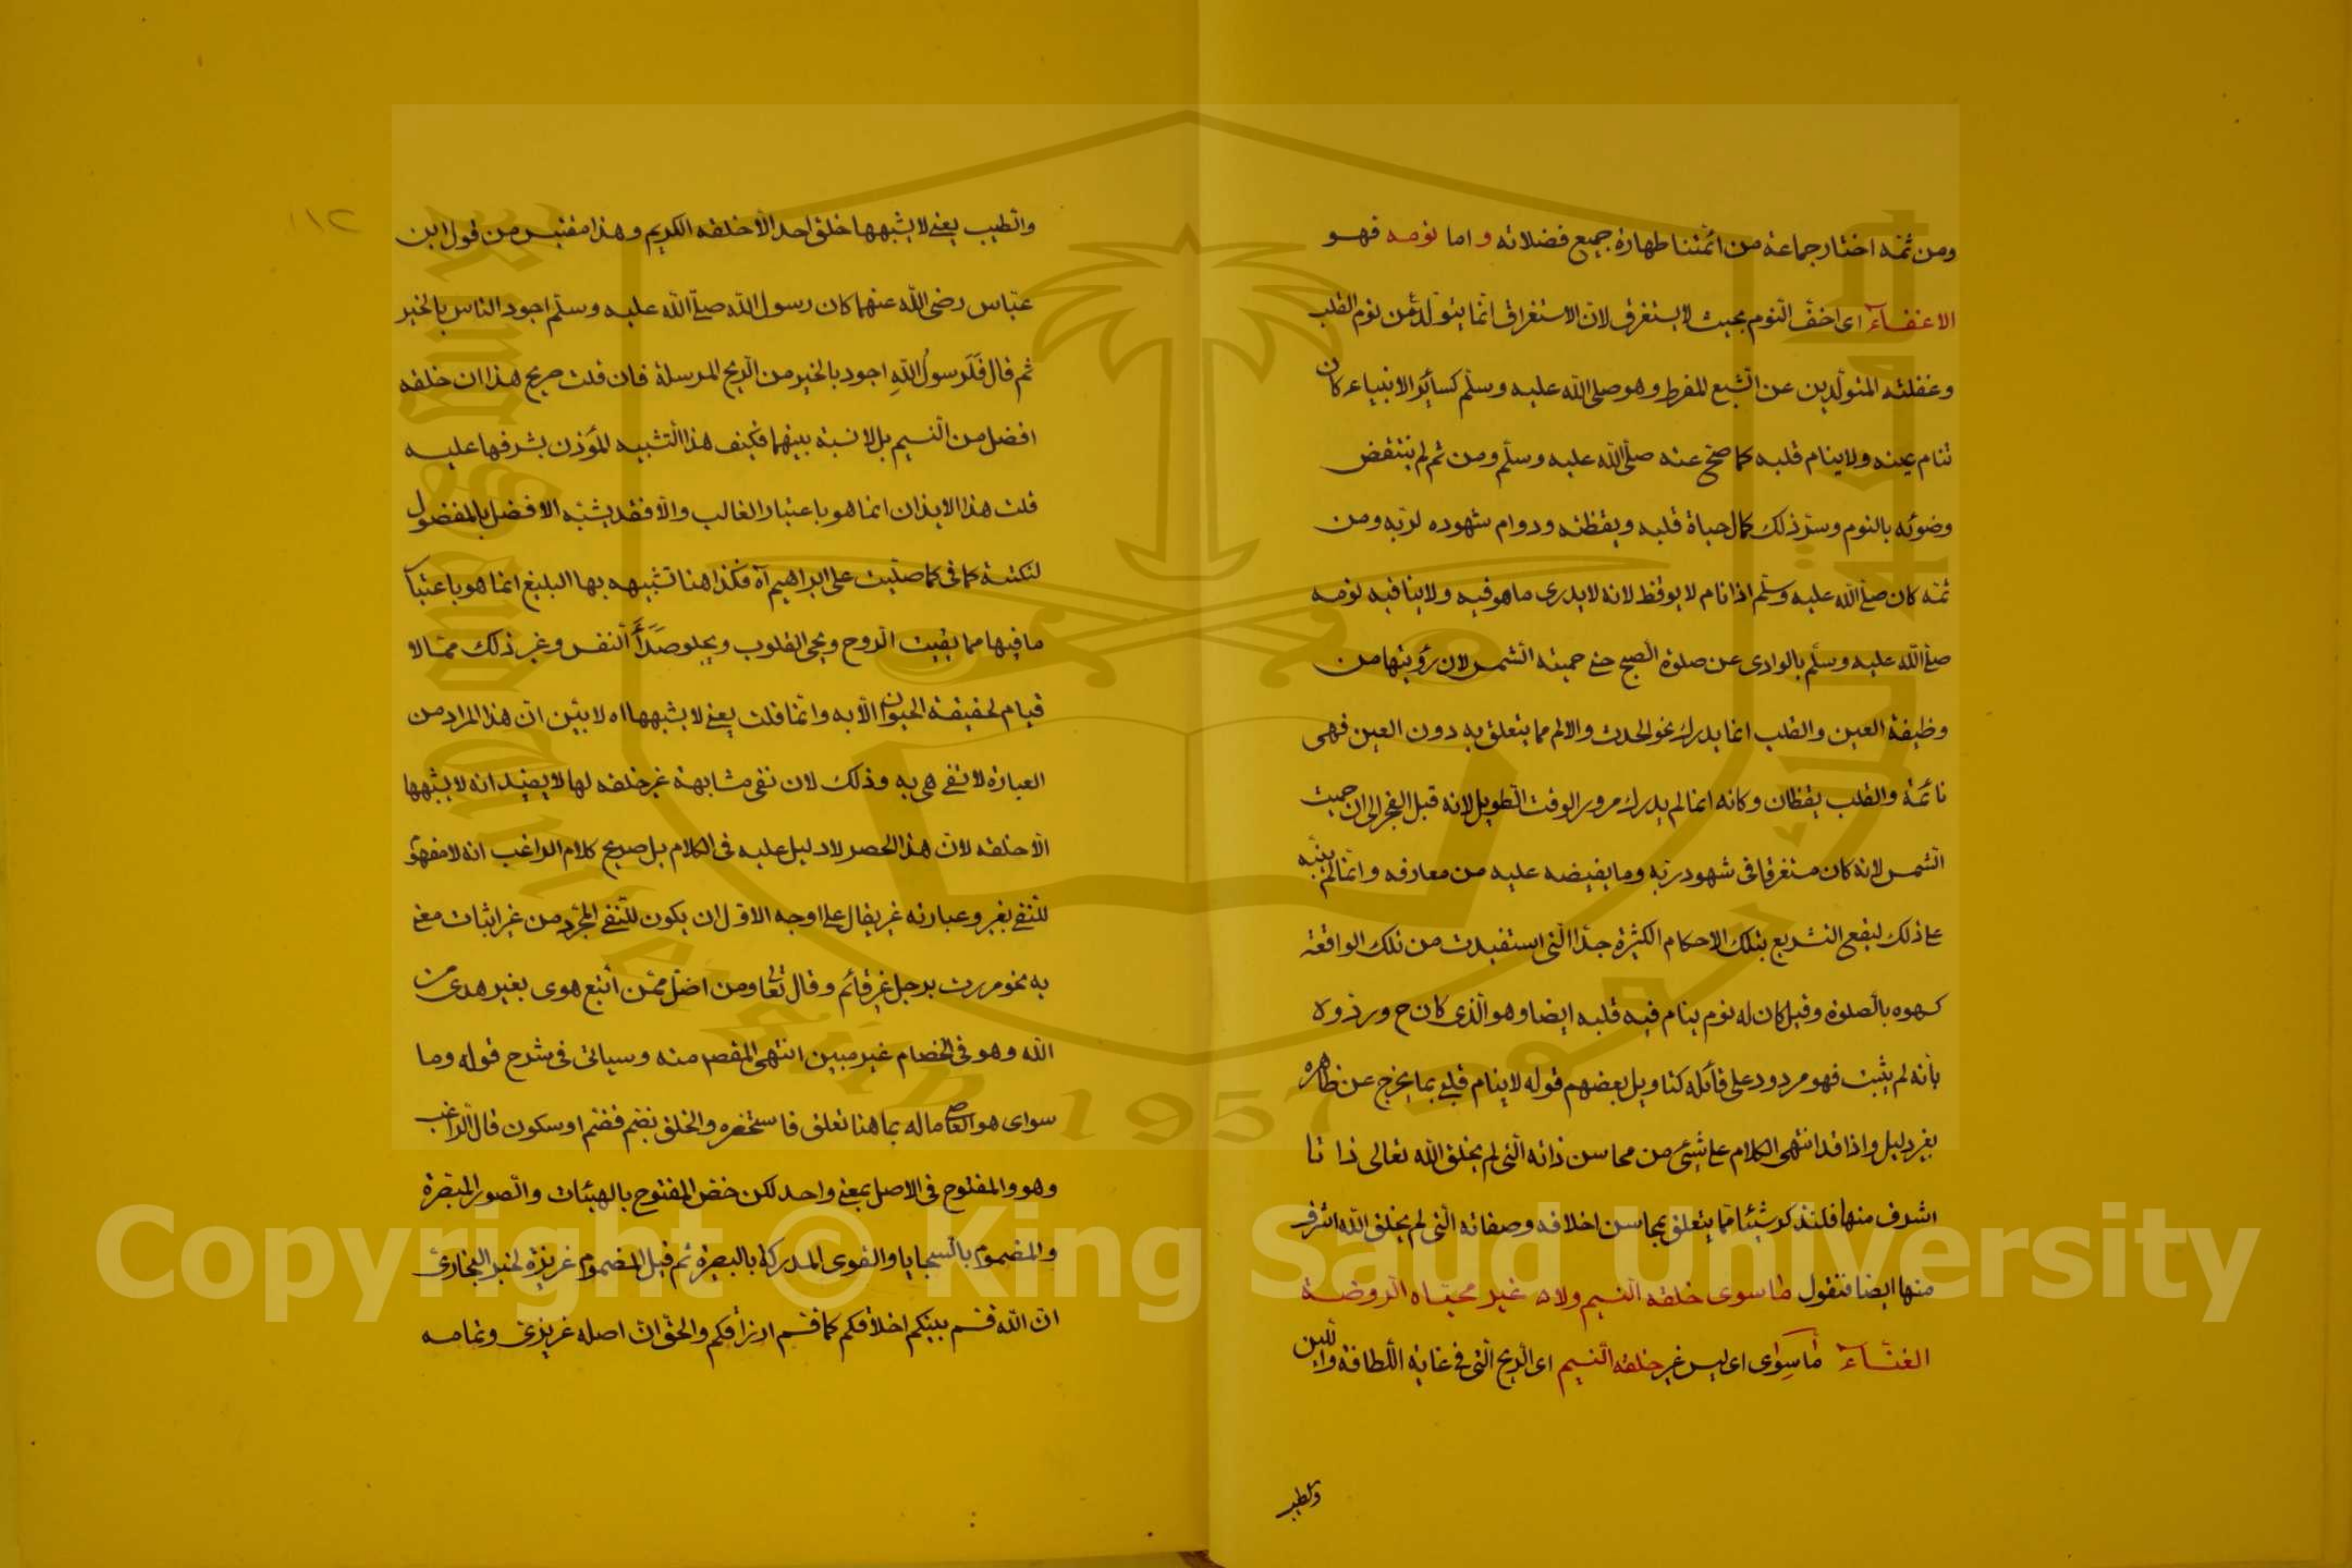 ومن ثمه اختار جماعة من ائمتنا طهارة جميع فضلاته و اما نومه فهو
الاغفآء اى اخف النوم بحيث لا يستغرق لان الاستغراق انما يتولد من نوم القلب
وغفلته المتولدين عن الشبع المفرط وهو صلى الله عليه وسلم كسائر الانبياء كان
تنام عينه ولا ينام قلبه كما صح عنه صلى الله عليه وسلم ومن ثم لم ينتقض
وضوئه بالنوم وسر ذلك كمال حياة قلبه ويقظته ودوام شهوده لربه ومن
ثمه كان صلى الله عليه وسلم اذا نام لا يوقظ لانه لا يدرى ما هو فيه ولا ينافيه نومه
صلى الله عليه وسلم بالوادى عن صلوة الصبح حتى حميته الشمس لان رؤيتها من
وظيفة العين والقلب انما يدرك نحو الحدث والالم مما يتعلق به دون العين فهى
نائمة والقلب يقظان وكانه انما لم يدرك مرور الوقت الطويل لانه قبل الفجر الى ان حميت
الشمس لانه كان مستغرقا فى شهود ربه وما يفيضه عليه من معارفه وانما لم ينبه
على ذلك ليقع التشريع بتلك الاحكام الكثيرة جدا التى استفيدت من تلك الواقعة
كسهوه بالصلوة وقيل كان له نوم ينام فيه قلبه ايضا وهو الذى كان ح وردوه
بانه لم يثبت فهو مردود على قائله كتاويل بعضهم قوله لا ينام قلبى بما يخرج عن ظاهره
بغير دليل واذا قد انتهى الكلام على شئ من محاسن ذاته التى لم يخلق الله تعالى ذاتا
اشرف منها فلنذكر شيئا مما يتعلق بمحاسن اخلاقه وصفاته التى لم يخلق الله اشرف
منها ايضا فنقول ما سوى خلقه النسيم ولا غير محياه الروضة
الغنآء ما سوى اى ليس غير خلقه النسيم اى الريح التى فى غاية اللطافة واللين
والطيب
١١٢
والطيب يعنى لا يشبهها خلق احد الا خلقه الكريم وهذا مقتبس من قول ابن
عباس رضى الله عنهما كان رسول الله صلى الله عليه وسلم اجود الناس بالخير
ثم قال فَلَرسولُ اللهِ اجود بالخير من الريح المرسلة فان قلت صريح هذا ان خلقه
افضل من النسيم بل لا نسبة بينهما فكيف هذا التشبيه المؤذن بشرفها عليه
قلت هذا الايذان انما هو باعتبار الغالب والا فقد يشبه الافضل بالمفضول
لنكتة كما فى كما صليت على ابراهيم آه فكذا هنا تشبيهه بها البليغ انما هو باعتبار
ما فيها مما يقيت الروح ويحى القلوب ويجلو صَدَأَ النفس وغير ذلك مما لا
قيام لحقيقة الحيوان الا به وانما قلت يعنى لا يشبهها اه لابين ان هذا المراد من
العبارة لا تفى هى به وذلك لان نفى مشابهة غير خلقه لها لا يفيد انه لا يشبهها
الا خلقه لان هذا الحصر لا دليل عليه فى الكلام بل صريح كلام الراغب انه لا مفهوم
للنفى بغير وعبارته غير يقال على اوجه الاول ان يكون للنفى المجرد من غير اثبات معنى
به نحو مررت برجل غير قائم وقال تعالى ومن اضل ممن اتبع هوى بغير هدى من
الله وهو فى الخصام غير مبين انتهى المقصر منه وسياتى فى شرح قوله وما
سواى هو العاصى ما له بما هنا تعلق فاستحضره والخلق بضم فضم او سكون قال الراغب
وهو والمفتوح فى الاصل بمعنى واحد لكن خص المفتوح بالهيئات والصور المبصرة
والمضموم بالسجايا والقوى المدركة بالبصيرة ثم قيل المضموم غريزة لخبر البخارى
ان الله قسم بينكم اخلاقكم كما قسم ارزاقكم والحق ان اصله غريزى وتمامه
Copyright © King Saud University
King Saud University
1957